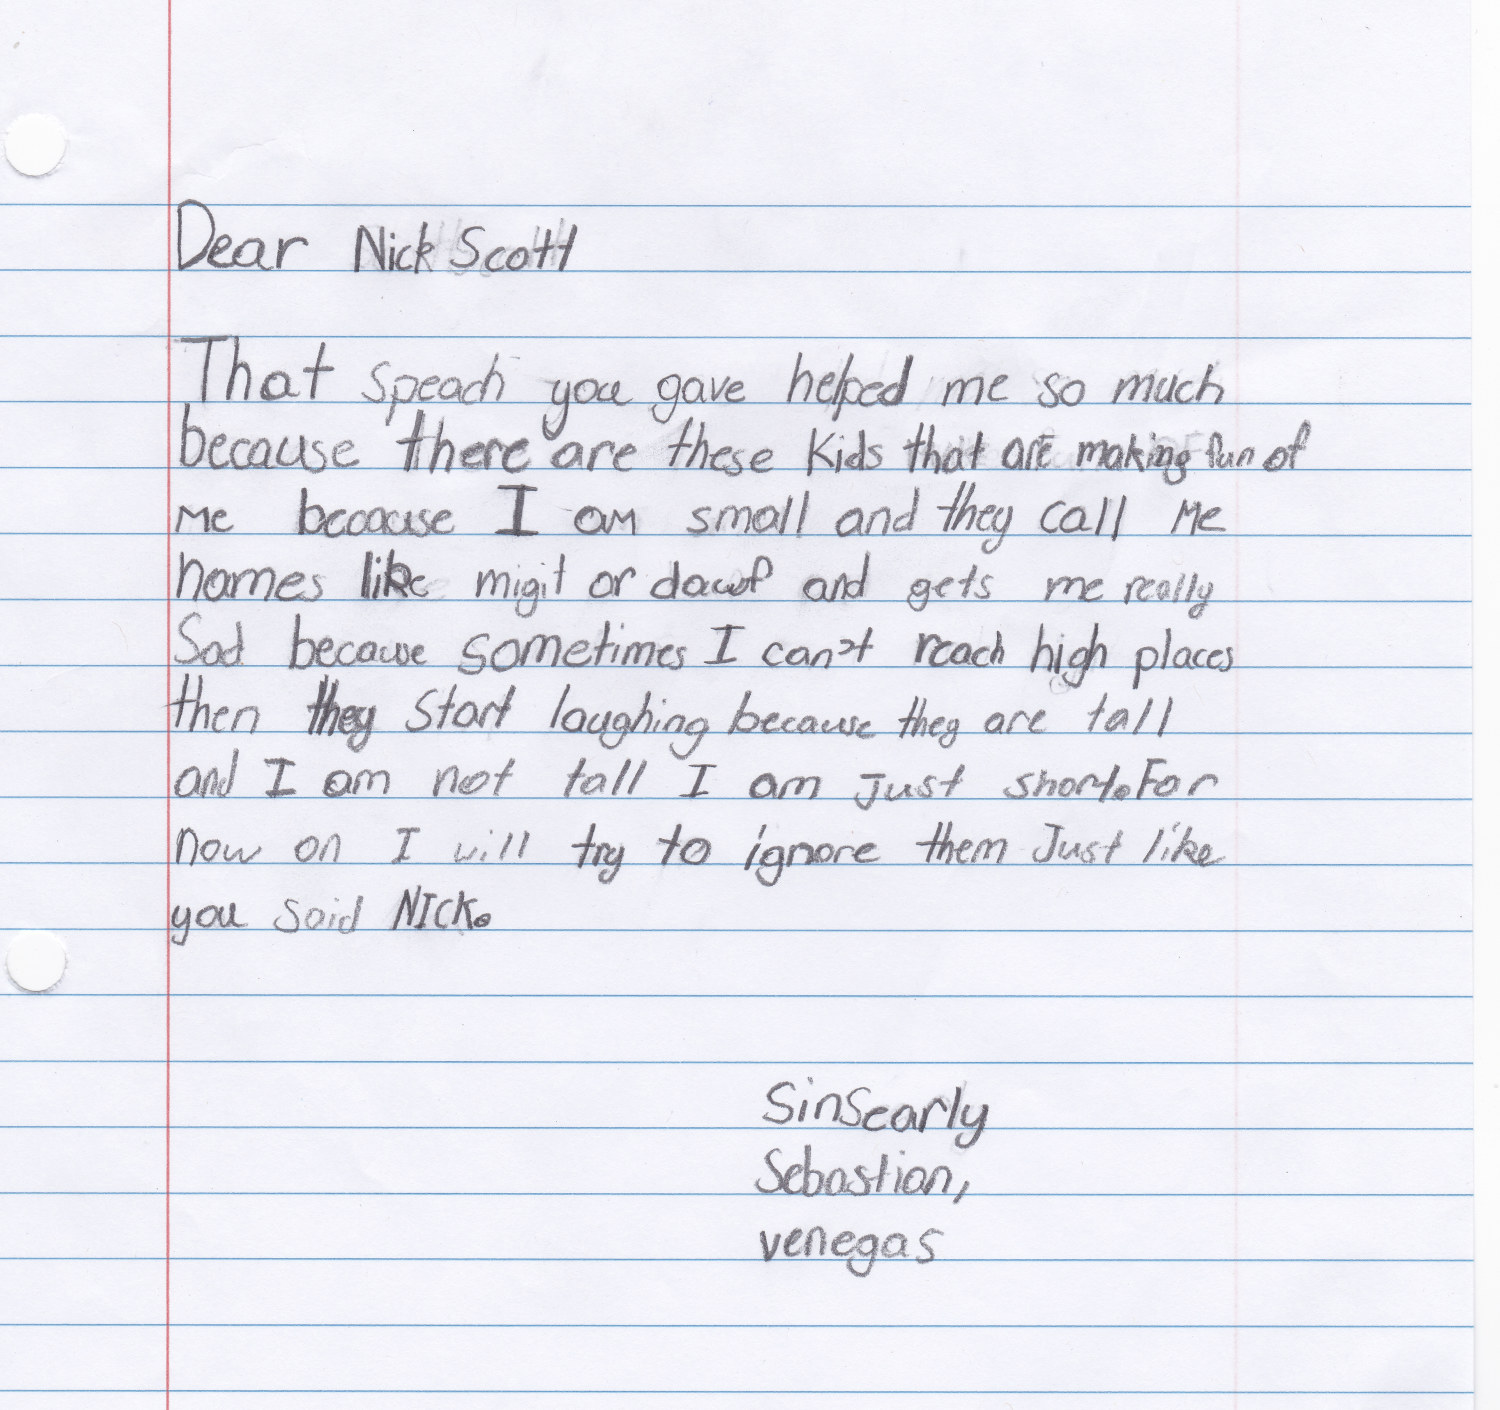 Dear Nick Scott
That speach you gave helped me so much
because there are these kids that are making fun of
me because I am small and they call me
names like migit or dawf and gets me really
Sad because sometimes I can't reach high places
then they start laughing because they are tall
and I am not tall I am just short. For
now on I will try to ignore them Just like
you said NICK.
Sinsearly
Sebastian,
venegas